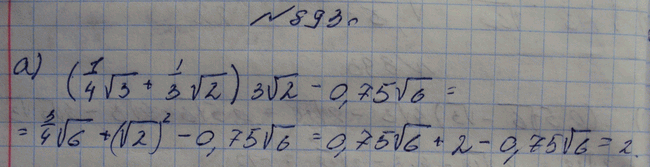 №893.
а) (1/4√3 + 1/3√2) 3√2 - 0,75√6 =
= 3/4√6 + (√2)² - 0,75√6 = 0,75√6 + 2 - 0,75√6 = 2.